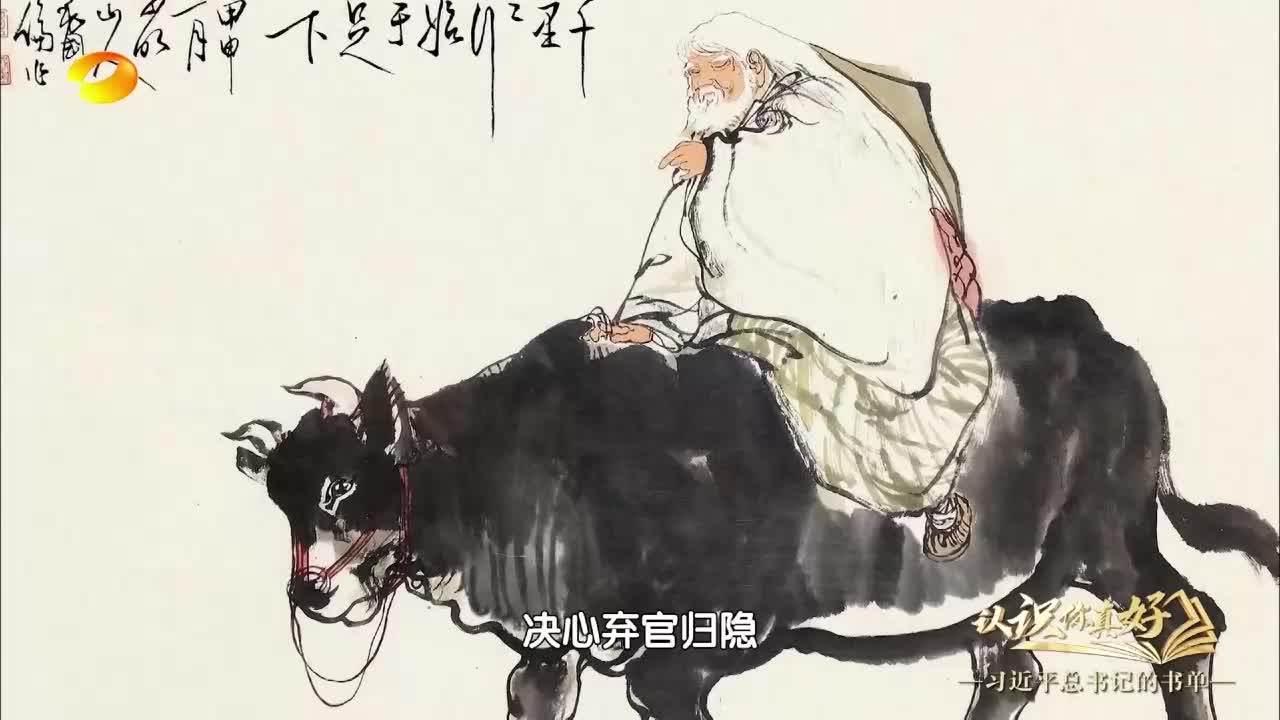 千里之行始于足下
甲申
一月
决心弃官归隐
认识你真好
习近平总书记的书单